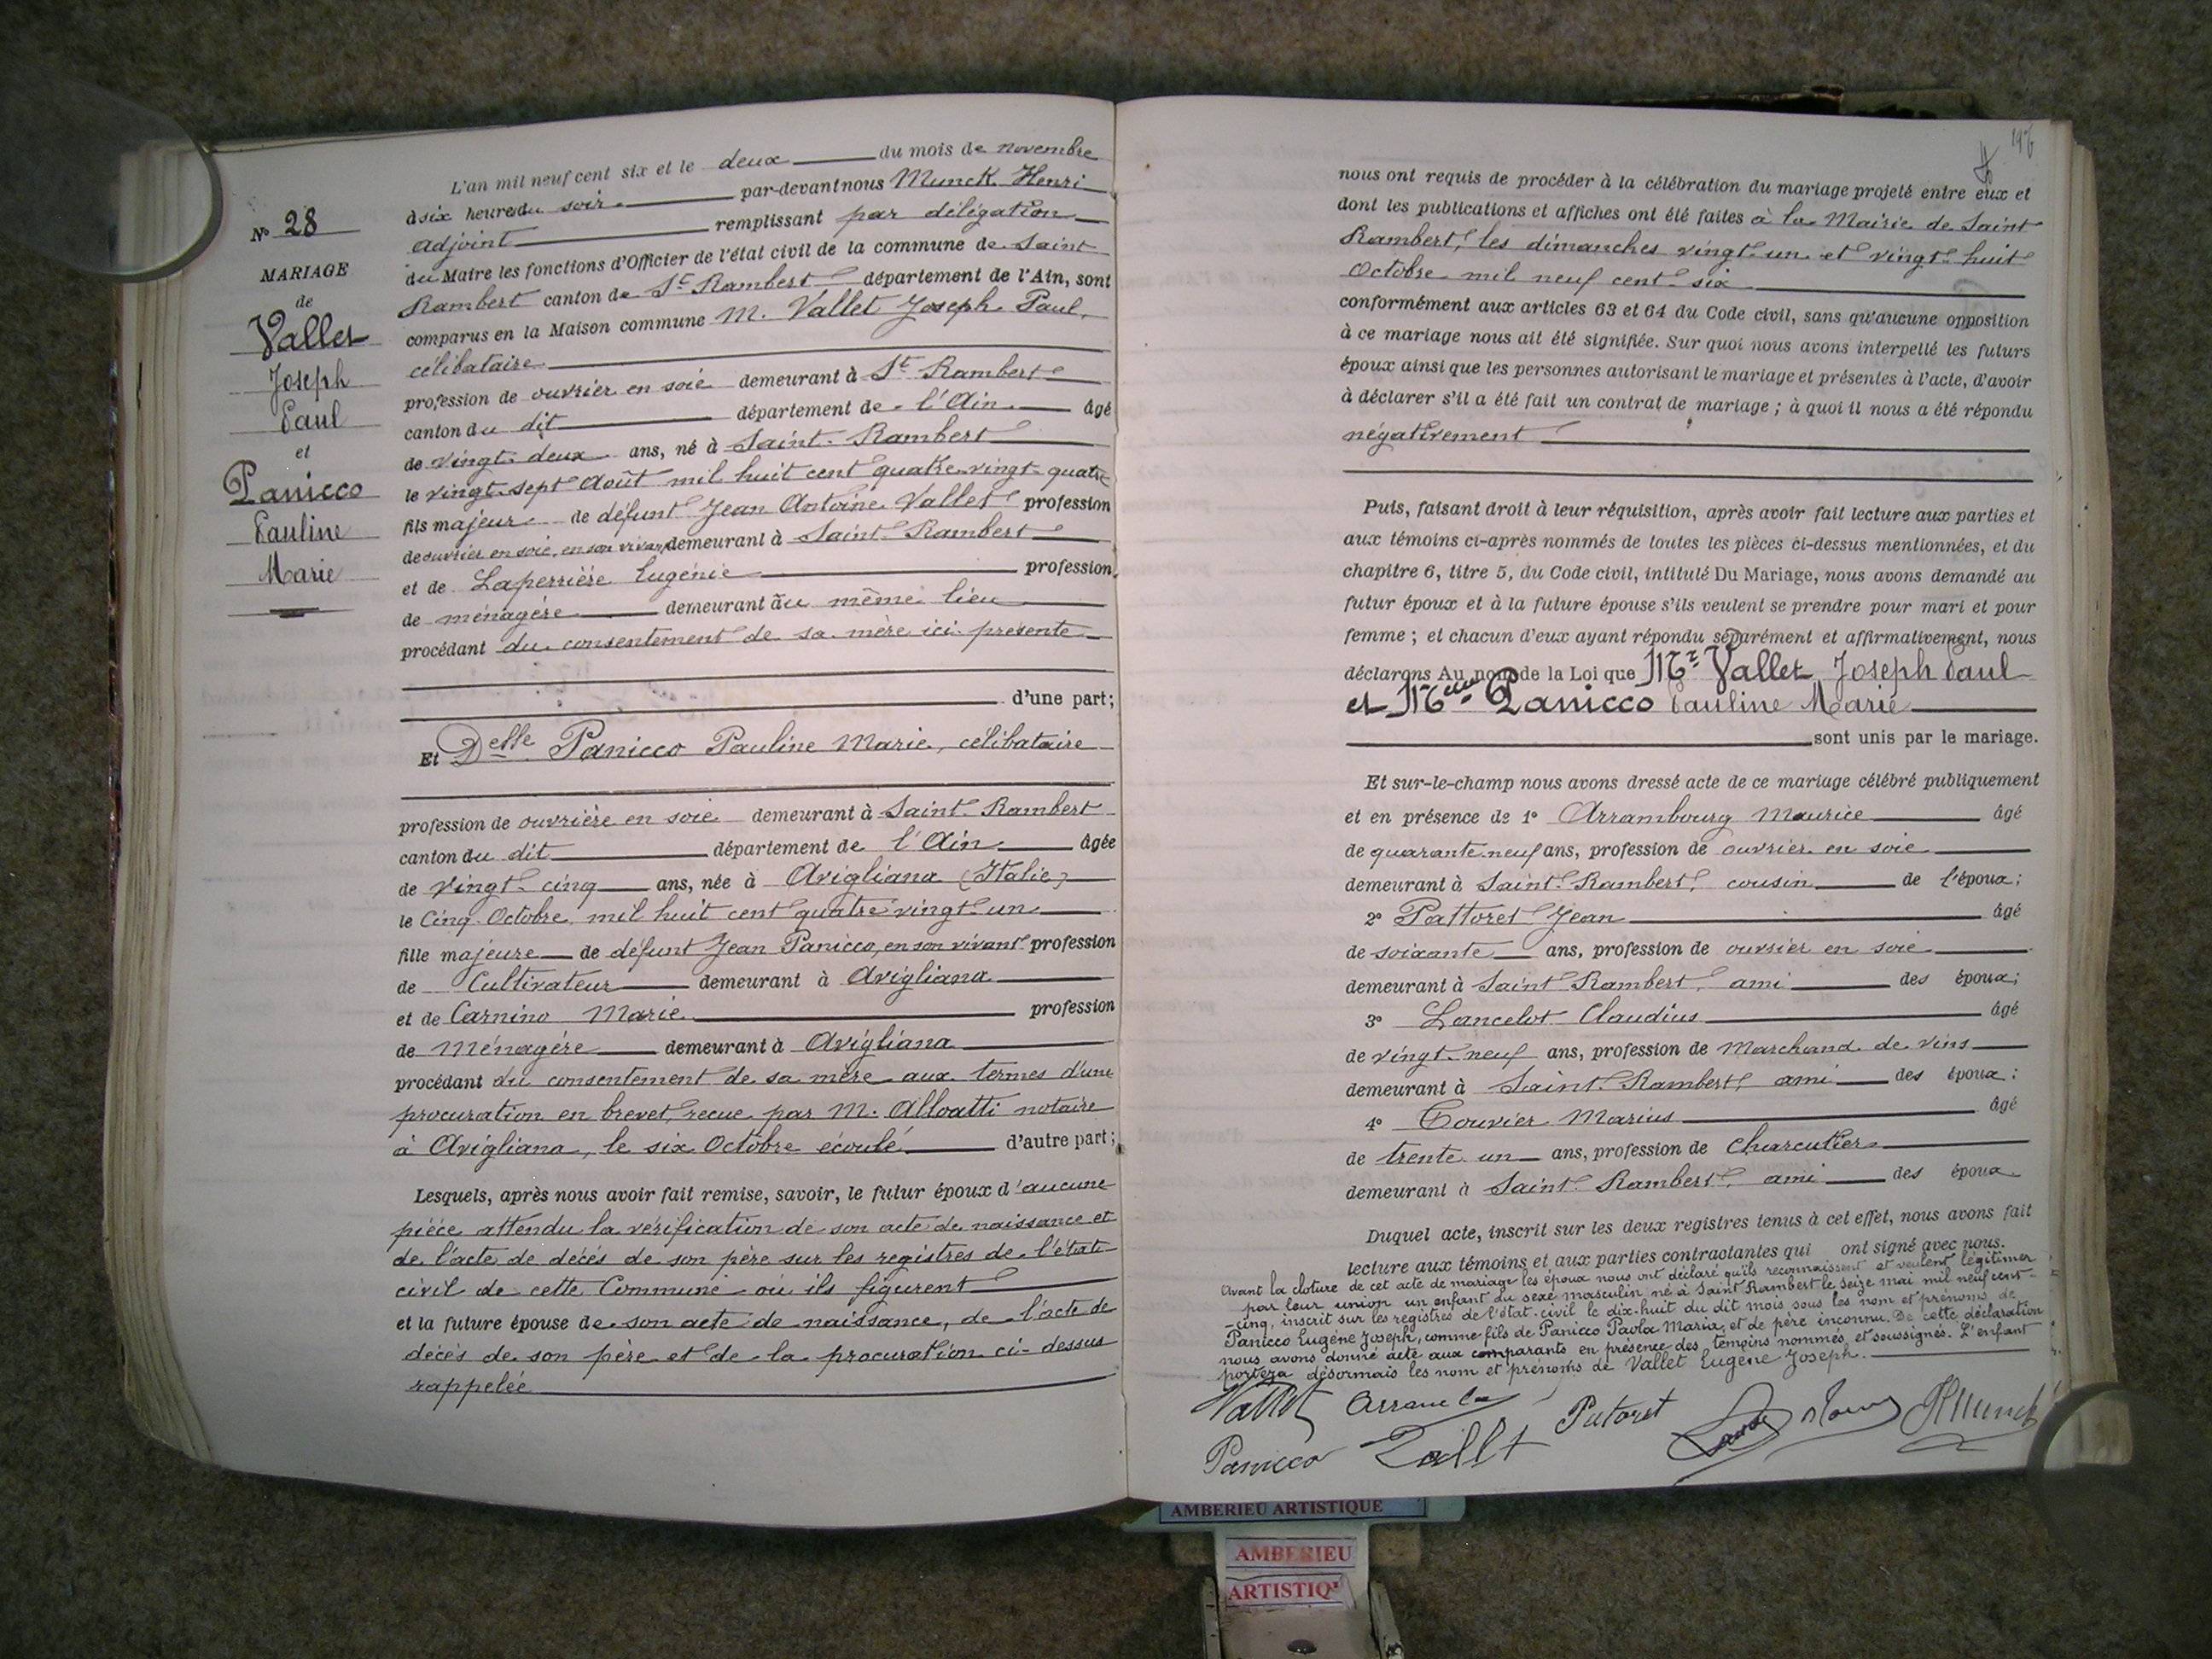 N° 28
MARIAGE
de
Vallet
Joseph
Paul
et
Panicco
Pauline
Marie
L'an mil neuf cent six et le deux du mois de novembre
à six heures du soir par-devant nous Munck Henri
adjoint remplissant par délégation
du Maire les fonctions d'Officier de l'état civil de la commune de Saint
Rambert canton de St Rambert département de l'Ain, sont
comparus en la Maison commune M. Vallet Joseph Paul,
célibataire
profession de ouvrier en soie demeurant à St Rambert
canton du dit département de l'Ain âgé
de vingt-deux ans, né à Saint-Rambert
le vingt-sept Août mil huit cent quatre-vingt-quatre
fils majeur de défunt Jean Antoine Vallet profession
de ouvrier en soie, en son vivant demeurant à Saint-Rambert
et de Laperrière Eugénie profession
de ménagère demeurant au même lieu
procédant du consentement de sa mère ici présente
d'une part;
Et Delle Panicco Pauline Marie, célibataire
profession de ouvrière en soie demeurant à Saint-Rambert
canton du dit département de l'Ain âgée
de vingt-cinq ans, née à Avigliana (Italie)
le Cinq Octobre mil huit cent quatre vingt-un
fille majeure de défunt Jean Panicco, en son vivant profession
de Cultivateur demeurant à Avigliana
et de Carnino Marie profession
de Ménagère demeurant à Avigliana
procédant du consentement de sa mère aux termes d'une
procuration en brevet, reçue par M. Alloatti notaire
à Avigliana, le six Octobre écoulé d'autre part;
Lesquels, après nous avoir fait remise, savoir, le futur époux d'aucune
pièce attendu la vérification de son acte de naissance et
de l'acte de décès de son père sur les registres de l'état
civil de cette Commune où ils figurent
et la future épouse de son acte de naissance, de l'acte de
décès de son père et de la procuration ci-dessus
rappelée
196
nous ont requis de procéder à la célébration du mariage projeté entre eux et
dont les publications et affiches ont été faites à la Mairie de Saint
Rambert, les dimanches vingt-un et vingt-huit
Octobre mil neuf cent-six
conformément aux articles 63 et 64 du Code civil, sans qu'aucune opposition
à ce mariage nous ait été signifiée. Sur quoi nous avons interpellé les futurs
époux ainsi que les personnes autorisant le mariage et présentes à l'acte, d'avoir
à déclarer s'il a été fait un contrat de mariage; à quoi il nous a été répondu
négativement
Puis, faisant droit à leur réquisition, après avoir fait lecture aux parties et
aux témoins ci-après nommés de toutes les pièces ci-dessus mentionnées, et du
chapitre 6, titre 5, du Code civil, intitulé Du Mariage, nous avons demandé au
futur époux et à la future épouse s'ils veulent se prendre pour mari et pour
femme; et chacun d'eux ayant répondu séparément et affirmativement, nous
déclarons Au nom de la Loi que Mr Vallet Joseph Paul
et Melle Panicco Pauline Marie
sont unis par le mariage.
Et sur-le-champ nous avons dressé acte de ce mariage célébré publiquement
et en présence de 1° Arrambourg Maurice âgé
de quarante-neuf ans, profession de ouvrier en soie
demeurant à Saint-Rambert, cousin de l'époux;
2° Pattoret Jean âgé
de soixante ans, profession de ouvrier en soie
demeurant à Saint-Rambert, ami des époux;
3° Lancelot Claudius âgé
de vingt-neuf ans, profession de Marchand de vins
demeurant à Saint-Rambert, ami des époux;
4° Touvier Marius âgé
de trente un ans, profession de Charcutier
demeurant à Saint-Rambert, ami des époux
Duquel acte, inscrit sur les deux registres tenus à cet effet, nous avons fait
lecture aux témoins et aux parties contractantes qui ont signé avec nous.
Avant la cloture de cet acte de mariage les époux nous ont déclaré qu'ils reconnaissent et veulent légitimer
par leur union un enfant du sexe masculin né à Saint Rambert le seize mai mil neuf cent-
-cinq, inscrit sur les registres de l'état-civil le dix-huit du dit mois sous les nom et prénoms de
Panicco Eugène Joseph, comme fils de Panicco Paola Maria, et de père inconnu. De cette déclaration
nous avons donné acte aux comparants en présence des témoins nommés et soussignés. L'enfant
portera désormais les nom et prénoms de Vallet Eugène Joseph.
Vallet Patoret HMunck
Panicco
AMBERIEU ARTISTIQUE
AMBERIEU
ARTISTIQ